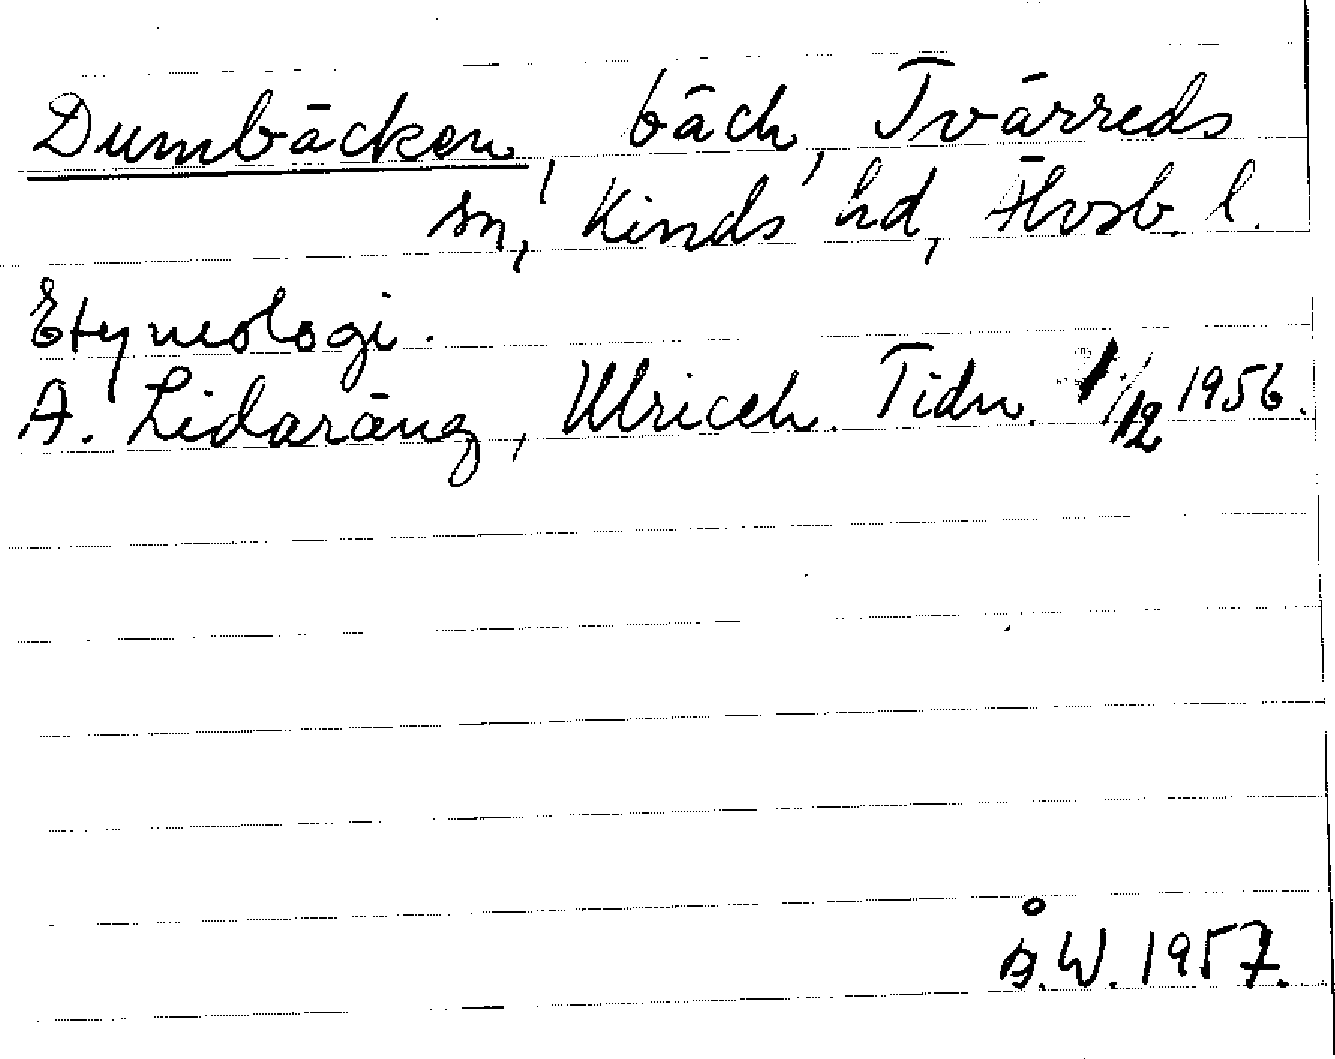 Dumbäcken, bäck, Tvärreds
sn, Kinds hd, Älvsb. l.
Etymologi.
A. Lidaräng, Ulriceh. Tidn. 1/12 1956.
Å.W. 1957.